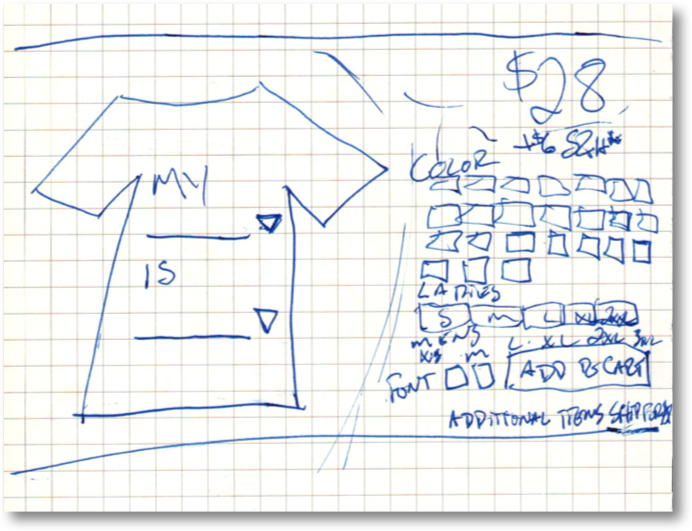 MY
IS
$28
+$6 S&H*
COLOR
LADIES
S M L XL 2XL
MENS
XS M L XL 2XL 3XL
FONT
ADD TO CART
ADDITIONAL ITEMS SHIP FOR